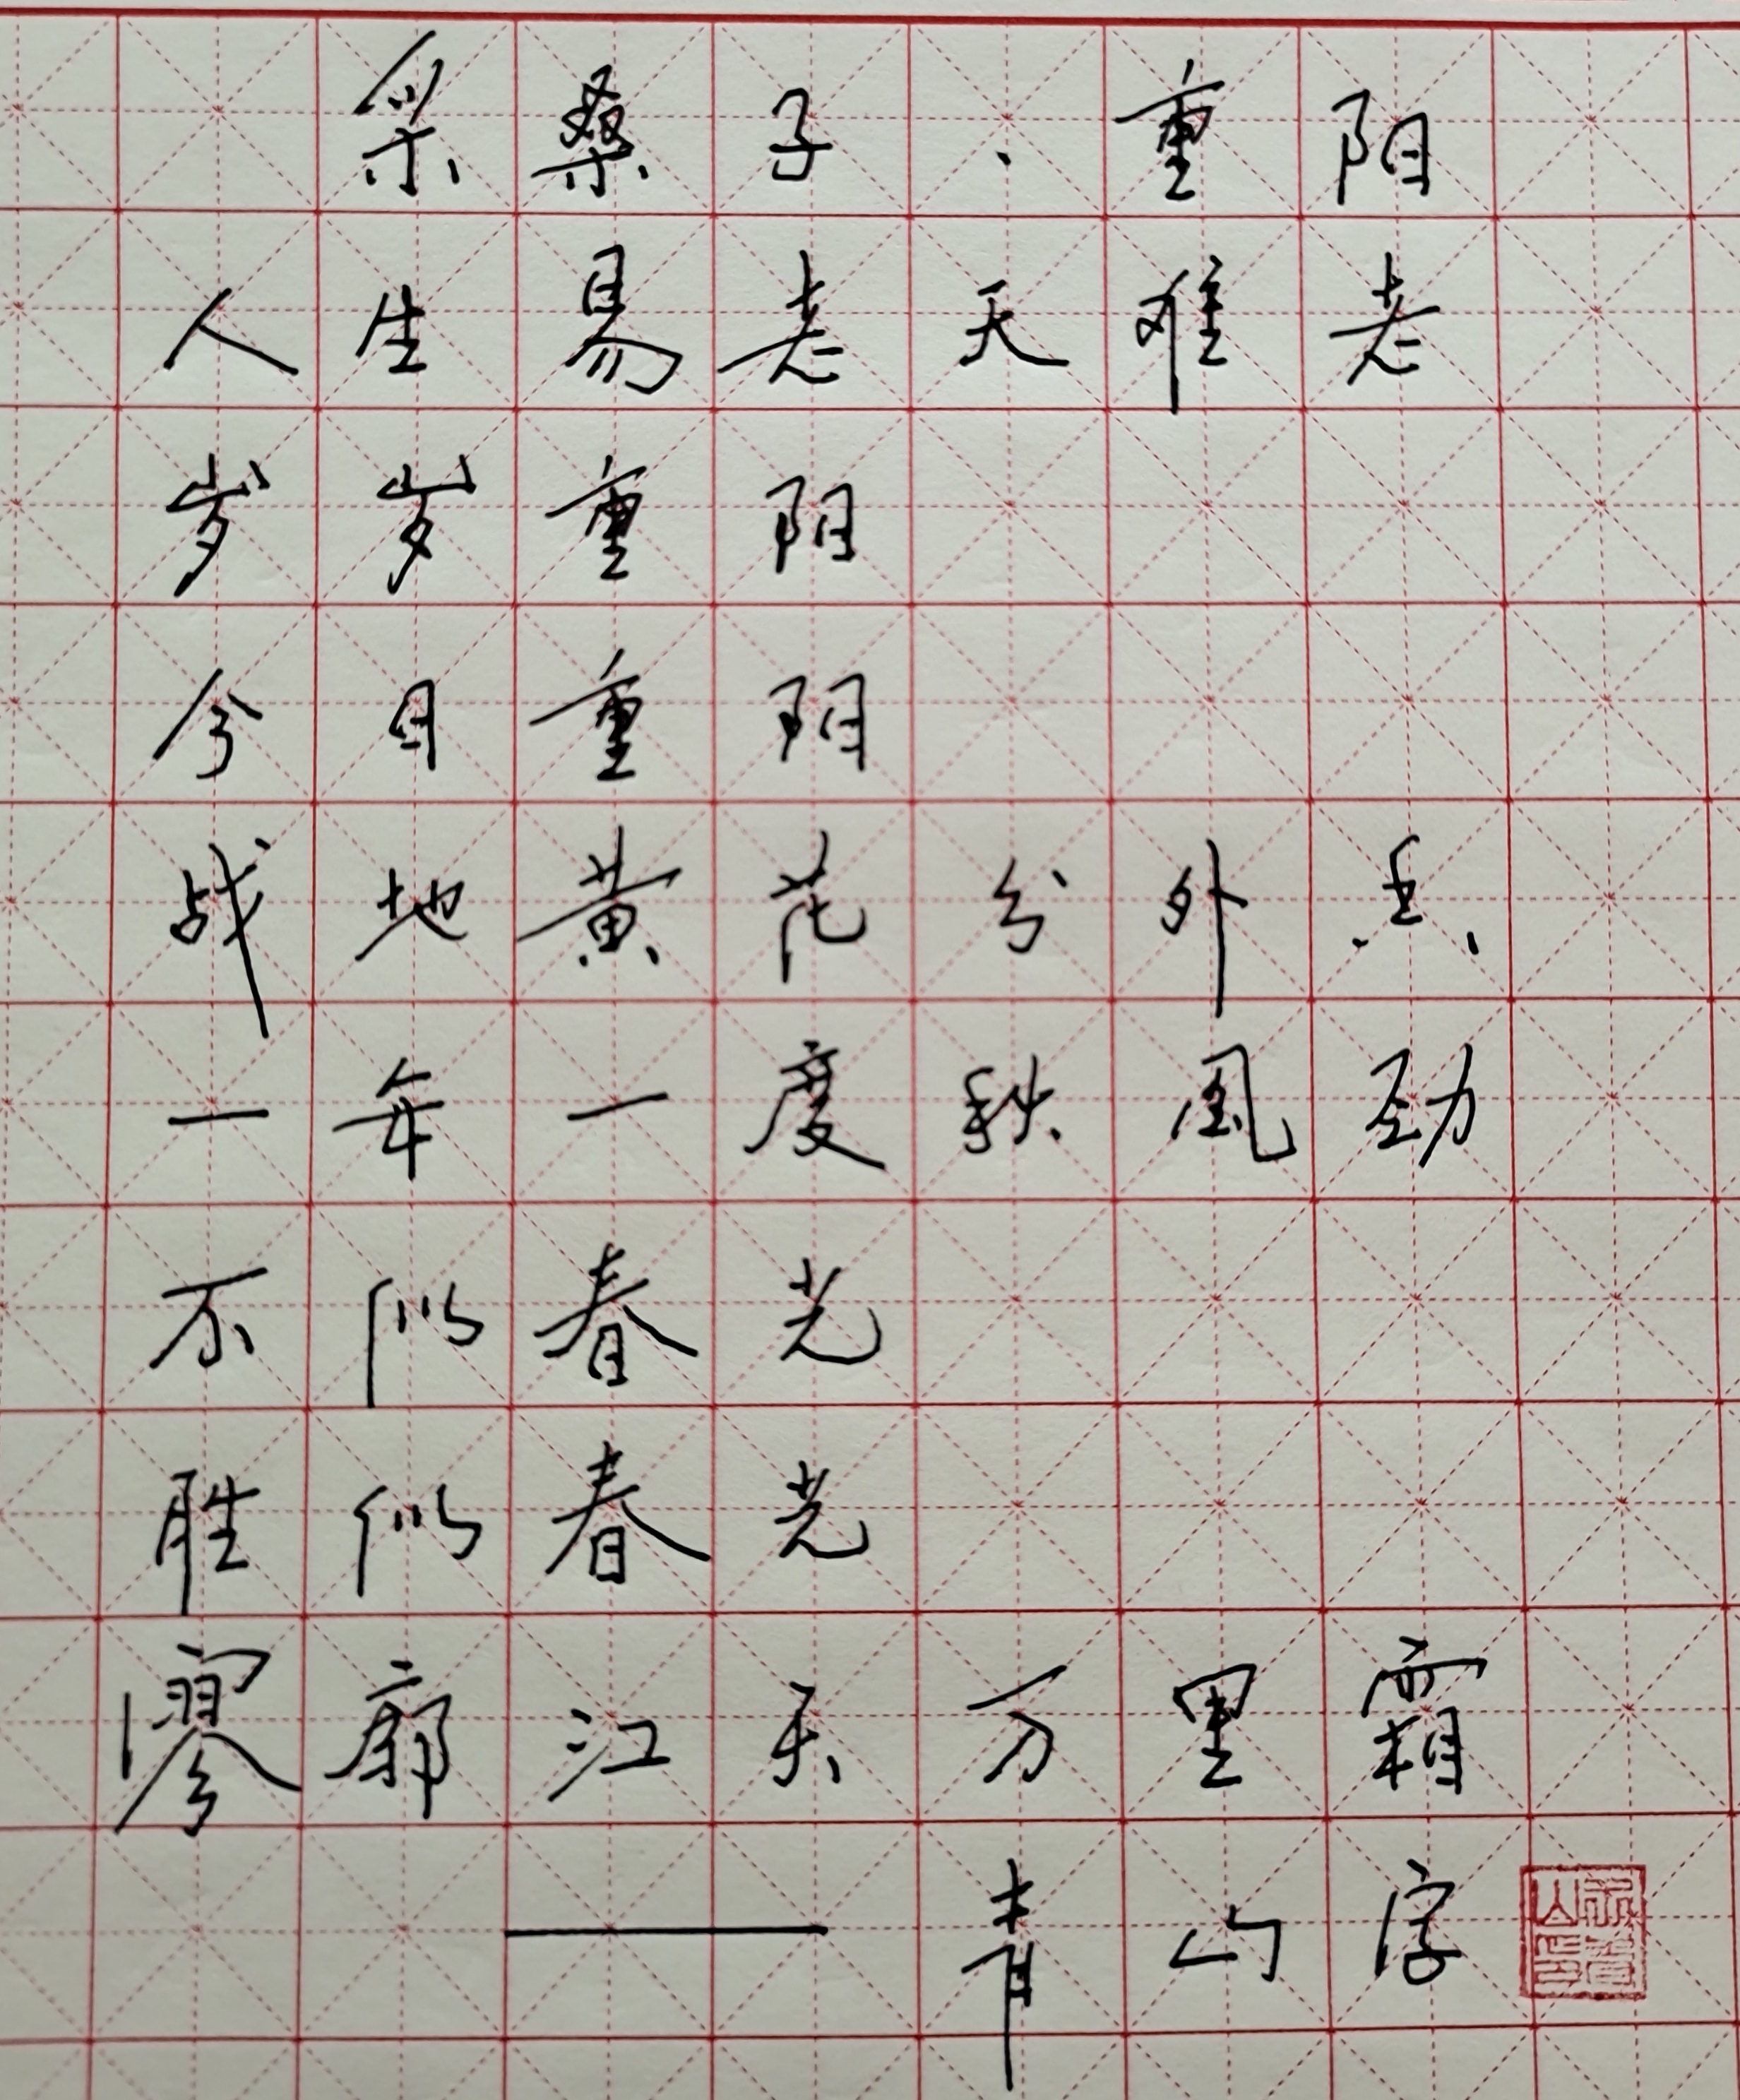 采桑子·重阳
人生易老天难老
岁岁重阳
今日重阳
战地黄花分外香
一年一度秋風劲
不似春光
胜似春光
寥廓江天万里霜
——青山字